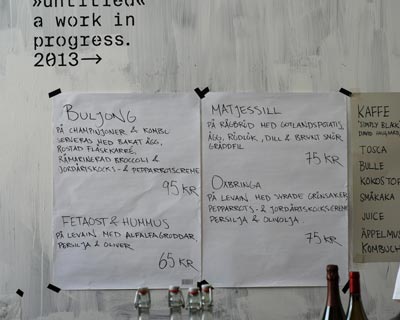 »untitled«
a work in
progress.
2013→
BULJONG
PÅ CHAMPINJONER & KOMBU
SERVERAD MED BAKAT ÄGG,
ROSTAD FLÄSKKARRÉ,
RÅMARINERAD BROCCOLI &
JORDÄRTSKOCKS- & PEPPARROTSCREME
95 KR
FETAOST & HUMMUS
PÅ LEVAIN MED ALFALFAGRODDAR,
PERSILJA & OLIVER
65 KR
MATJESSILL
PÅ RÅGBRÖD MED GOTLANDSPOTATIS,
ÄGG, RÖDLÖK, DILL & BRYNT SMÖR
GRÄDDFIL
75 KR
OXBRINGA
PÅ LEVAIN MED SYRADE GRÖNSAKER
PEPPARROTS- & JORDÄRTSKOCKSCREME
PERSILJA & OLIVOLJA
75 KR
KAFFE
"SIMPLY BLACK"
DAVID
TOSCA
BULLE
KOKOSTOP
SMÅKAKA
JUICE
ÄPPELMUS
KOMBUCH